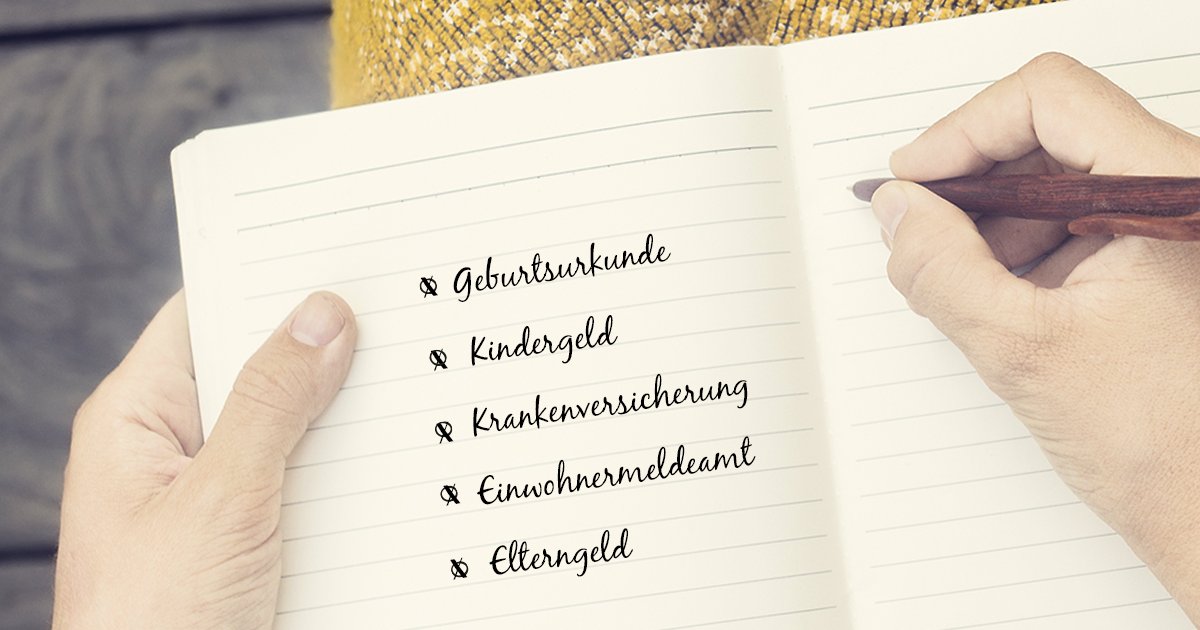 Geburtsurkunde
Kindergeld
Krankenversicherung
Einwohnermeldeamt
Elterngeld